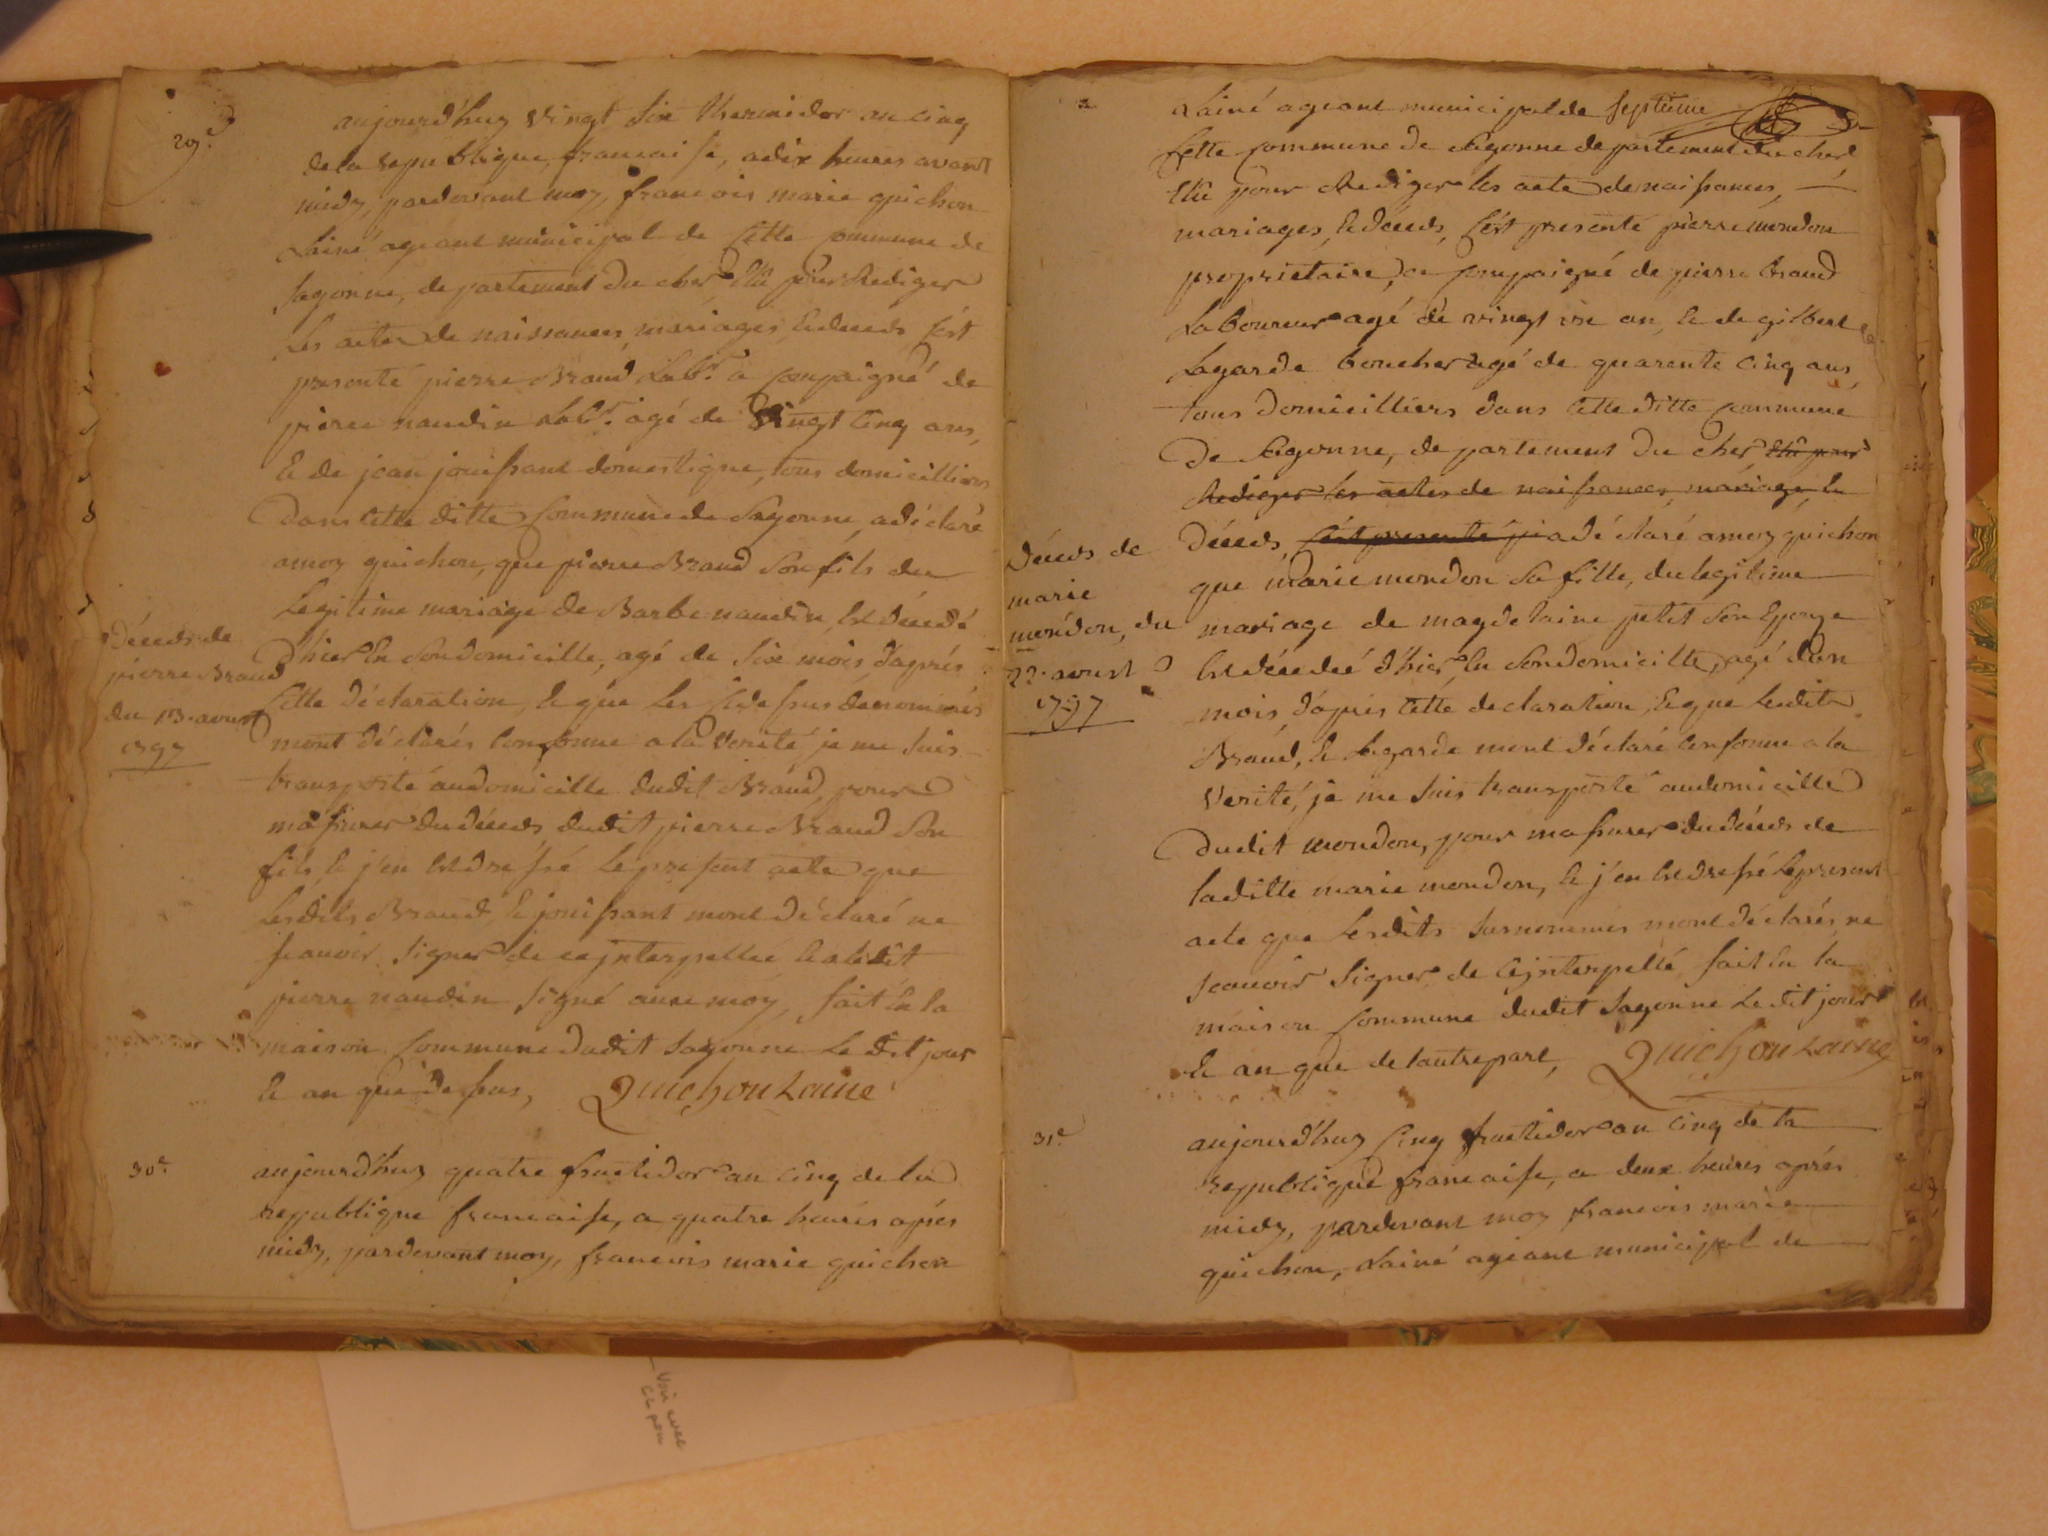 29e
aujourd'huy vingt six thermidor an cinq
de la republique francaise, a dix heures avant
midy, pardevant moy, francois marie guichon
Lainé ageant municipal de cette commune de
sagonne, departement du cher Elu pour Rediger
Les actes de naissances, mariages, & deceds s'est
presenté pierre Braud Labr. a compaigné de
pierre naudin Labr. agé de vingt cinq ans,
& de jean jouissant domestique, tous domicilliers
dans cette ditte commune de Sagonne, a déclaré
a moy guichon, que pierre Braud son fils du
Legitime mariage de Barbe naudin est décedé
d'hier En son domicille, agé de six mois d'aprés
Cette déclaration, & que Les si dessus dénommés
mont déclarés conforme a la verité je me suis
transporté au domicille dudit Braud, pour
massurer du déceds dudit pierre Braud son
fils, & j'en est dressé Le present acte que
Lesdits Braud, & jouissant mont déclaré ne
scauoir signer de ce jnterpellée & a ledit
pierre naudin signé avec moy, fait En la
maison commune dudit sagonne Le dit jour
& an que dessus, Guichon Lainé
Déceds de
pierre Braud
du 13. aoust
1797
30e.
aujourd'huy quatre fructidor an cinq de la
republique francaise, a quatre heures aprés
midy, pardevant moy, francois marie guichon
Lainé ageant municipal de septieme
Cette commune de sagonne departement du cher
Elu pour Rediger les acte de naissances,
mariages, & déceds, s'est presenté pierre mondon
proprietaire, a compaigné de pierre braud
Laboureur agé de vingt six an, & de gilbert
Lagarde boucher agé de quarente cinq ans,
tous domicilliers dans cette ditte commune
de sagonne, de partement du cher Elu pour
Rediger les actes de naissances, mariage, &
déceds, s'est presenté pi a dé claré a moy guichon
que marie mondon sa fille, du legitime
mariage de magdelaine petit son Epouze
est décedeé d'hier En son domicille, agé d'un
mois, d'aprés cette declaration, & que Ledit
Braud, & Lagarde mont déclaré conforme a la
verité, je me suis transporté au domicille
dudit mondon, pour massurer du déceds de
laditte marie mondon, & j'en est dressé Le present
acte que Lesdits surnommés mont déclarés, ne
scauoir signer, de ce jnterpellé, fait En la
maison commune dudit Sagonne Le dit jour
& an que de lautre part, Guichon Lainé
Déceds de
marie
mondon, du
22. aoust
1797
31e.
aujourd'huy cinq fructidor an cinq de la
republique francaise, a deux heures aprés
midy, pardevant moy francois marie
guichon, Lainé ageant municipal de